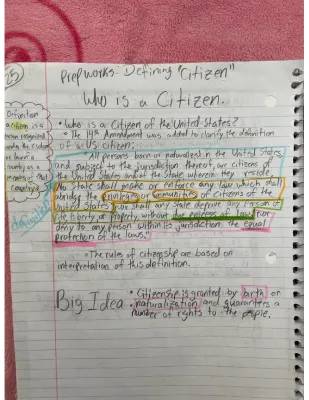 25
Prepworks- Defining "Citizen"
Who is a Citizen.
Definition
a citizen is a
person recognized
under the custom
or law of a
country as a
that
country
• Who is a Citizen of the United States?
• The 14th Amendment was added to clarify the definition
of a US citizen:
"All persons born or naturalized in the United States
and subject to the jurisdiction thereof, are citizens of
the United States and of the State wherein they reside.
No State shall make or enforce any law which shall
abridge the privileges or immunities of citizens of the
United States; nor shall any State deprive any person of
life, liberty, or property, without due process of law; nor
deny to any person within its jurisdiction the equal
protection of the laws."
• The rules of citizenship are based on
interpretation of this definition.
Big Idea
• Citizenship is granted by birth or
naturalization and guarantees a
number of rights to the people.